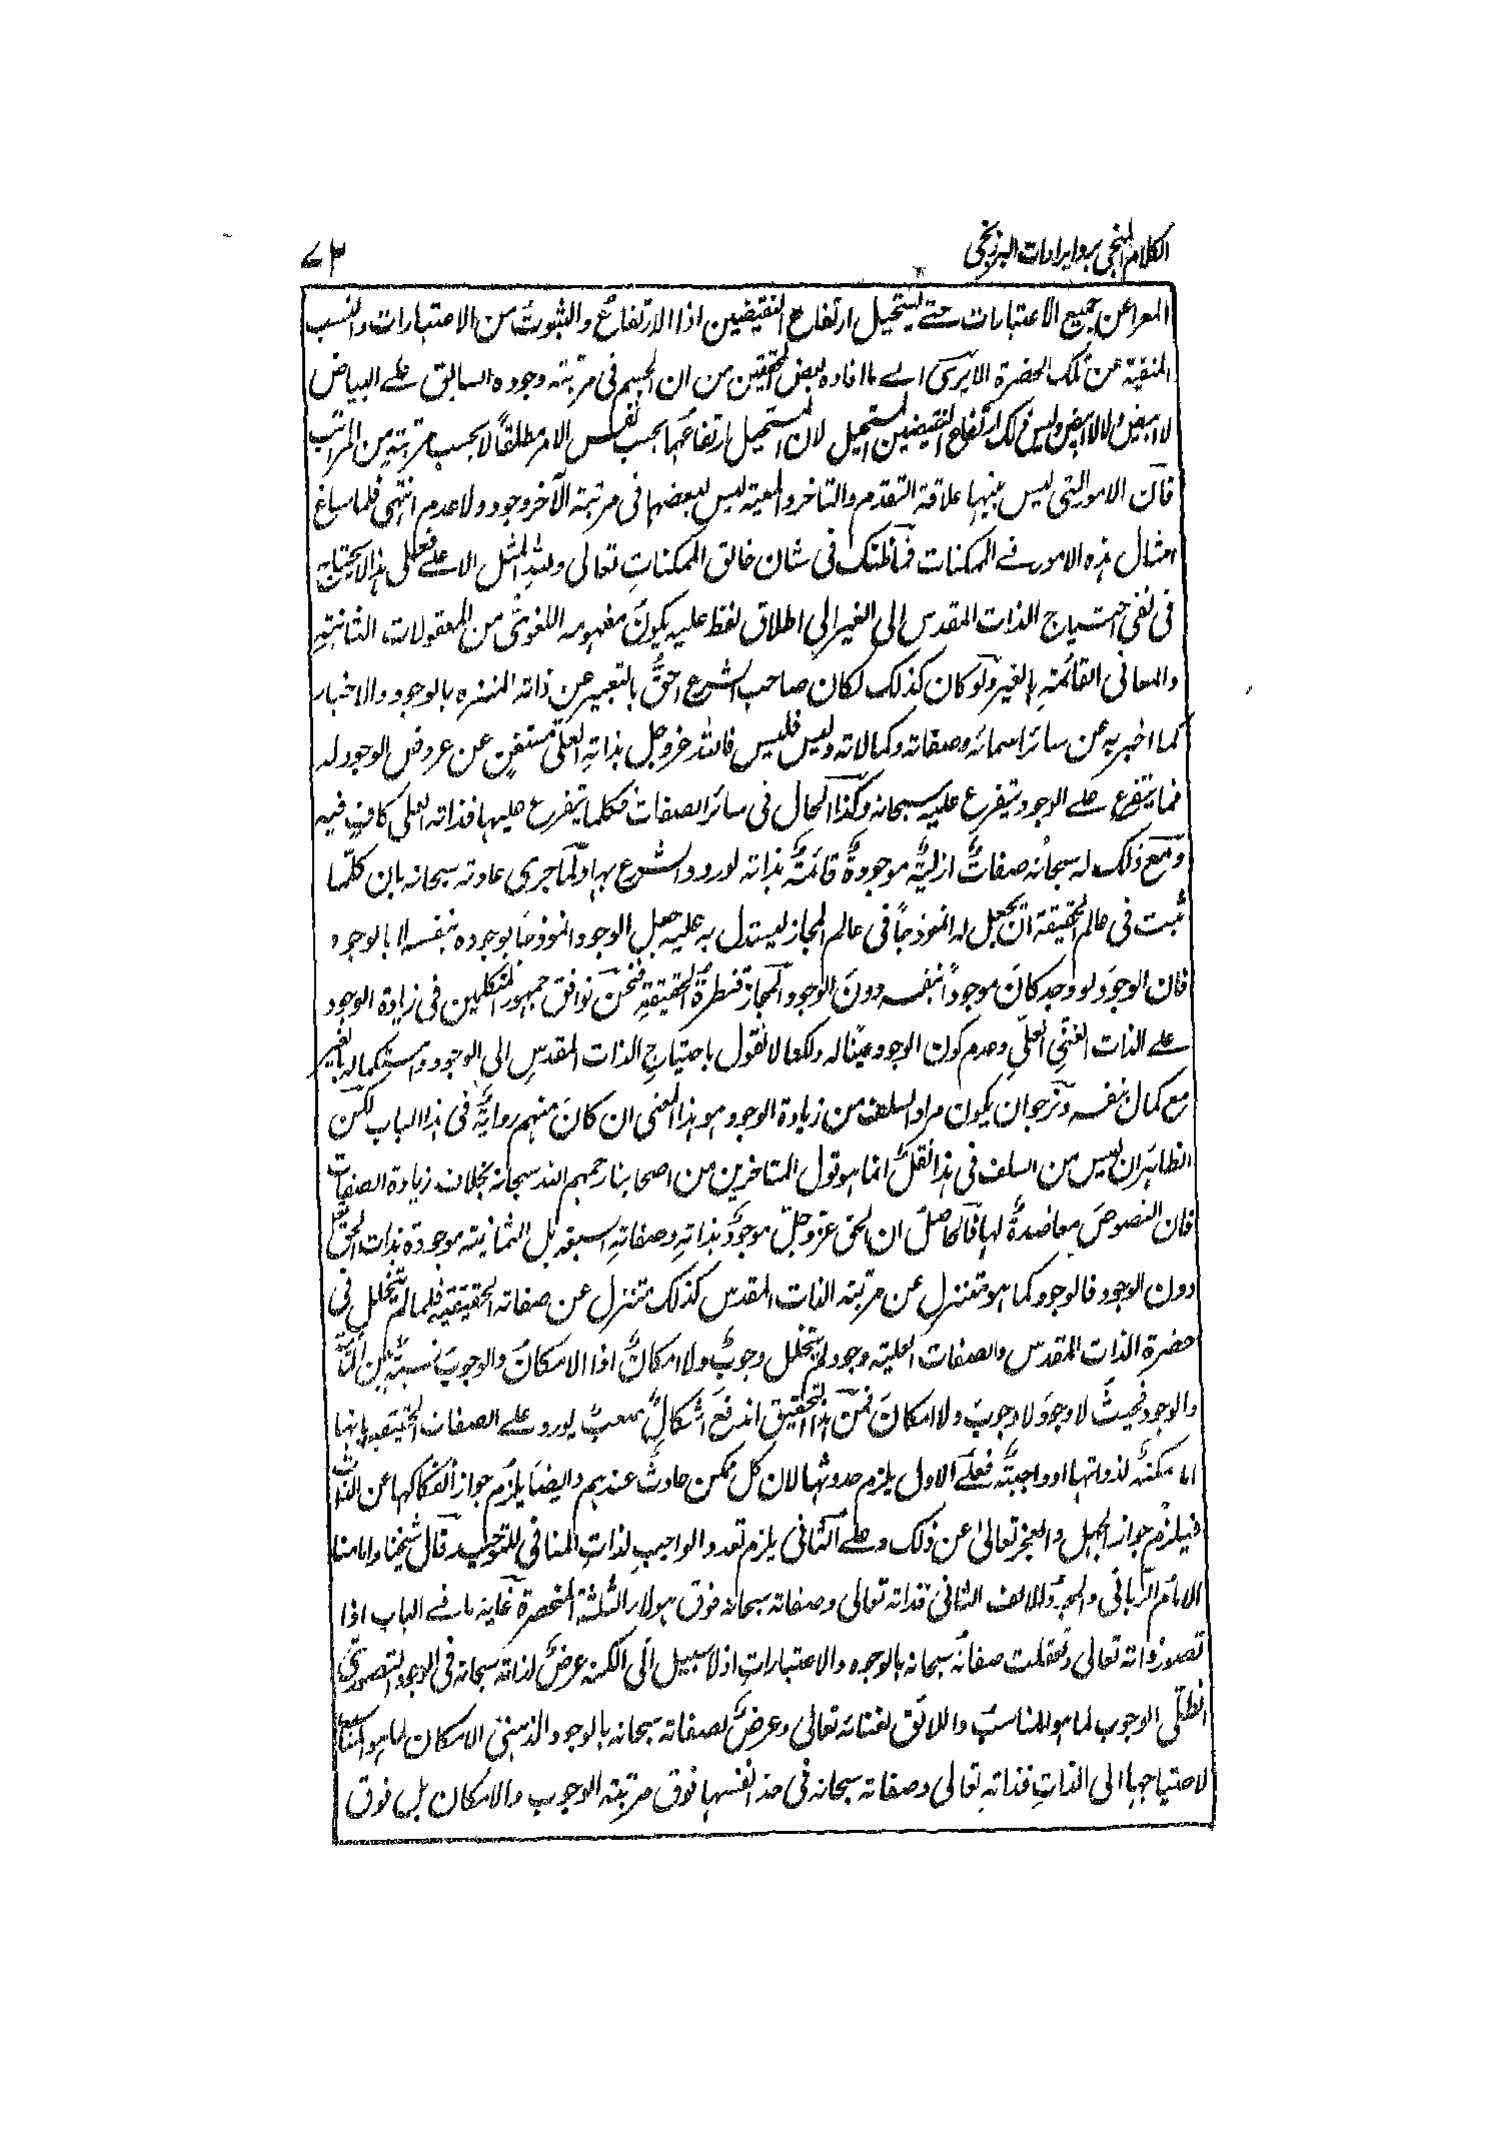 الکلام المنجی برد ایرادات البرزنجی
۷۳
المعرا عن جمیع الاعتبارات حتے یستحیل ارتفاع النقیضین اذا الارتفاعُ والثبوت من الاعتبارات والنسب
المنفیة عن تلک الحضرة الاترٰی الے ما افاده بعض المحققین من ان الجسم فی مرتبته وجوده السابق علے البیاض
لا ابیض ولا لا ابیض ولیس ذلک ارتفاع النقیضین المستحیل لان المستحیل ارتفاعُهما بحسب نفس الامر مطلقاً لا بحسب مرتبة من المراتب
فان الامور التی لیس بینها علاقة التقدم والتاخر والمعیته لیس لبعضها فی مرتبة الآخر وجود ولا عدم انتهی فلما ساغ
امثال هذه الامور فے الممکنات فما ظنک فی شان خالق الممکناتِ تعالی ولله المثل الاعلے فعلی هذا لا یحتاج
فی نفی احتیاج الذات المقدس الی الغیر الی اطلاق لفظ علیه یکونُ مفهومه اللغویُ من المعقولات الثانیةِ
والمعانی القائمته بالغیر ولو کان کذلک لکان صاحب الشرع احقُّ بالتعبیر عن ذاته المنزه بالوجود والاخبار
کما اخبر به عن سائر اسمائه وصفاته وکمالاته ولیس فلیس فالله عز وجل بذاتهِ العلّی مستغنٍ عن عروض الوجود له
فما یتفرع علے الوجود یتفرع علیه سبحانه وکذا الحال فی سائر الصفات فکلما یتفرع علیها فذاته العلی کافٍ فیه
ومع ذلک له سبحانه صفاتٌ ازلیةٌ موجودةٌ قائمةٌ بذاته لورود الشرع بها ولما جری عادته سبحانه بان کلّما
ثبت فی عالم الحقیقة ان یجعل له انموذجاً فی عالم المجاز لیستدل به علیه جعل الوجود انموذجا بوجوده بنفسه لا بالوجود
فان الوجودَ لو وُجد کانَ موجوداً بنفسه دونَ الوجود والمجاز قنطرةُ الحقیقةِ فنحن نوافق جمهور المتکلمین فی زیادة الوجود
علے الذات الغنّی العلّی وعدم کون الوجود عینًا له ولکنا لا نقول باحتیاج الذات المقدسِ الی الوجود واستکماله بالغیر
مع کمال بنفسه ونرجو ان یکون مراد السلف من زیادة الوجود هو هذا المعنی ان کانَ منهم روایةٌ فی هذا الباب لکن
الظاہر ان لیس من السلف فی هذا نقلٌ انما هو قول المتاخرین من اصحابنا رحمهم الله سبحانه بخلاف زیادة الصفات
فان النصوصَ معاضدةٌ لها فالحاصل ان الحق عزوجل موجودٌ بذاتهِ وصفاتهِ السبعة بل الثمانیته موجودة بذات الحق
دون الوجود فالوجود کما هو متنزل عن مرتبته الذات المقدس کذلک متنزل عن صفاته الحقیقیة فلما لم یتخلل فی
حضرة الذات المقدس والصفات العلیته وجود لم یتخلل وجوبٌ ولا امکانٌ اذا الامکانُ والوجوبُ نسبةٌ بین الذات
والوجود فحیثُ لا وجودَ لا وجوبَ ولا امکانَ فمن هذا التحقیق اندفعَ اشکالٌ صعبٌ یورد علے الصفات الحقیقیه بانها
اما ممکنةٌ لذواتها او واجبةٌ فعلے الاول یلزم حدوثها لان کل ممکن حادثٌ عندهم وایضاً یلزم جواز انفکاکها عن الذات
فیلزم جواز الجهل والعجز تعالیٰ عن ذلک وعلے الثانی یلزم تعدد الواجب لذات المنافی للتوحید قال شیخنا وامامنا
الامام الربانی والمجدد للالف الثانی فذاته تعالی وصفاته سبحانه فوق هولاء الثلثة المنحصرة غایة ما فے الباب اذا
تصور ذاته تعالی وتعقلت صفاتُه سبحانه بالوجوه والاعتبارات اذ لا سبیل الی الکنه عرضَ لذاته سبحانه فی الوجود التصوری
الظلی الوجوب لما هو المناسب واللائق لغنائه تعالی وعرضَ لصفاته سبحانه بالوجود الذهنی الامکان لما هو المناسب
لاحتیاجها الی الذات فذاته تعالی وصفاته سبحانه فی حد انفسها فوق مرتبته الوجوب والامکان بل فوق